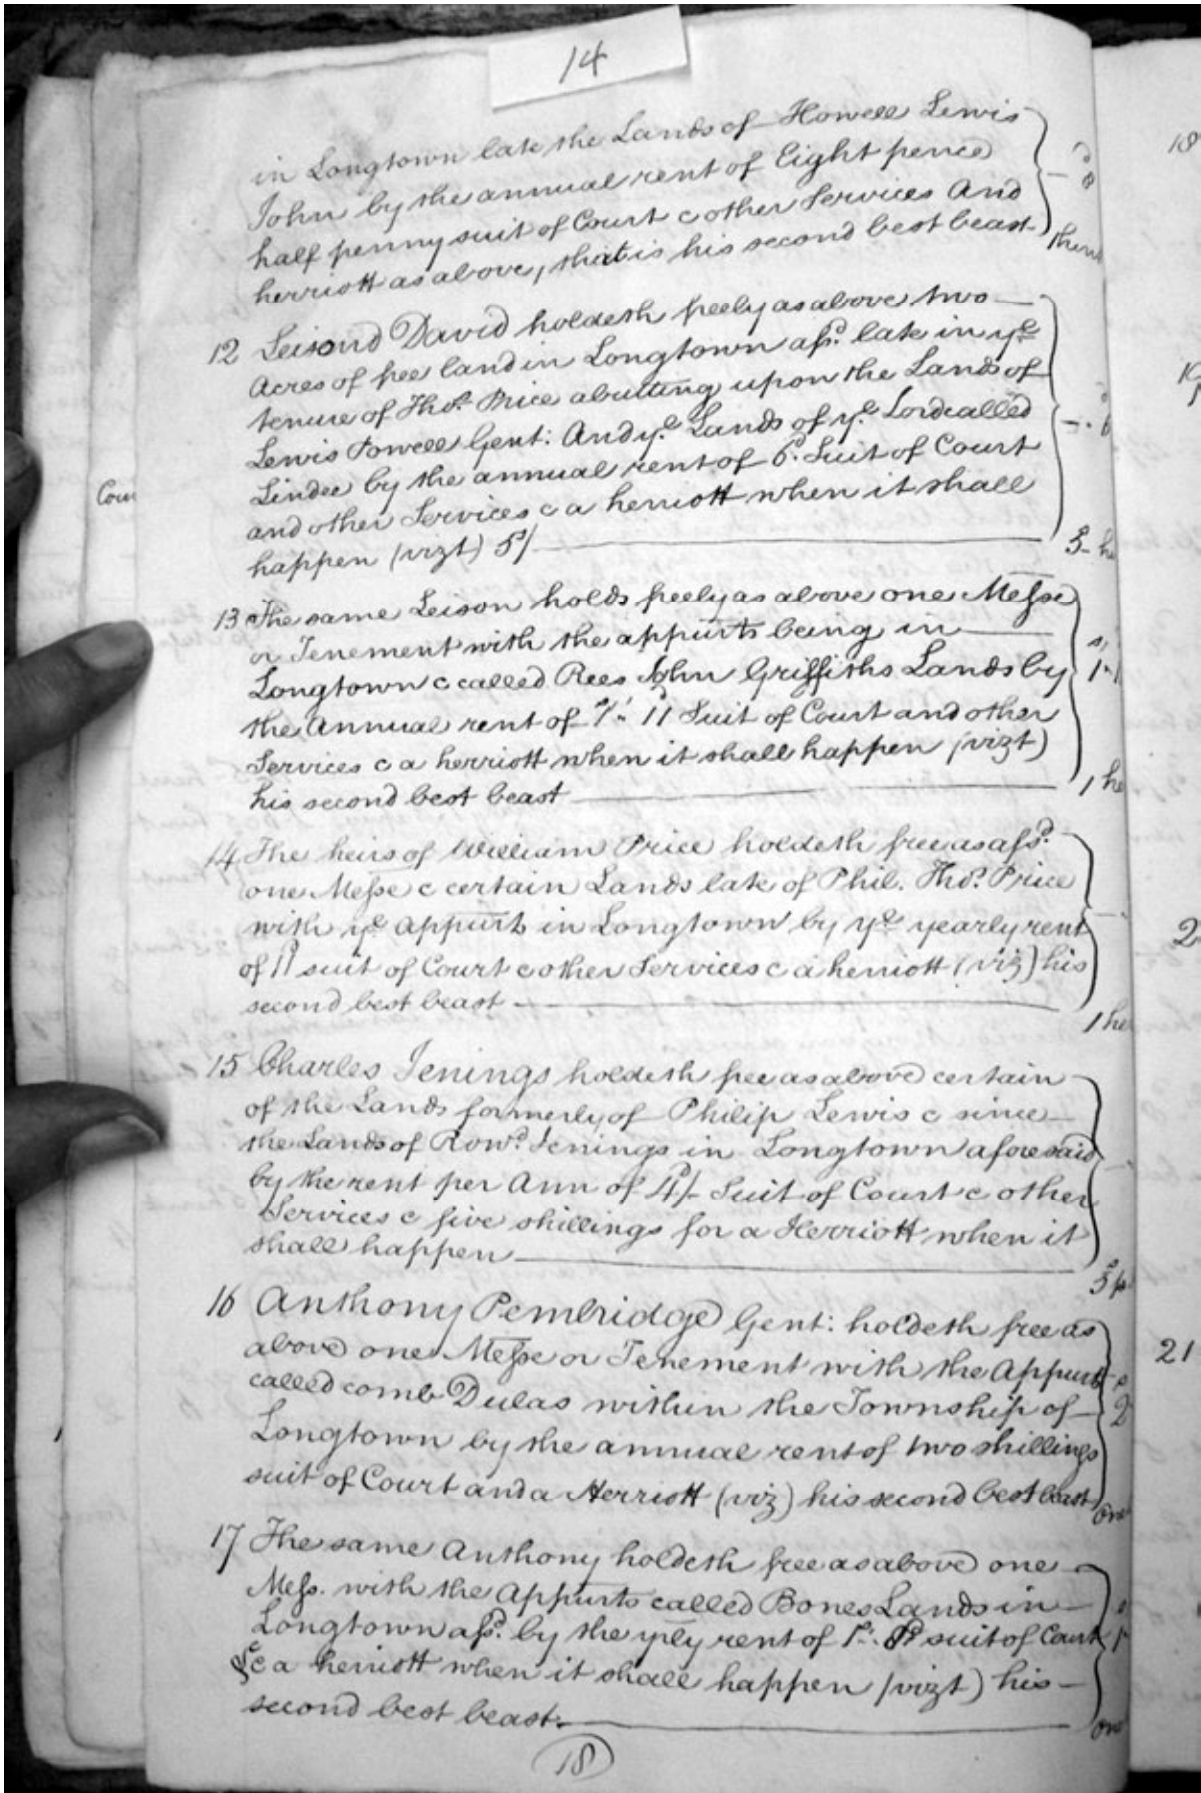 14
in Longtown late the Lands of Howell Lewis
John by the annual rent of Eight pence
half penny suit of Court c other Services And
herriott as above, that is his second best beast
12 Leisond David holdeth freely as above two
Acres of free land in Longtown afsd. late in ye
tenure of Thos. Price abutting upon the Lands of
Lewis Powell Gent: And ye Lands of ye Lord called
Lindee by the annual rent of 6d. Suit of Court
and other Services c a herriott when it shall
happen (vizt) 5s/
5- he
13 The same Leison holds freely as above one Messe
or Tenement with the appurts being in
Longtown c called Rees John Griffiths Lands by
the Annual rent of 1s: 1d Suit of Court and other
Services c a herriott when it shall happen (vizt)
his second best beast
1 he
14 The heirs of William Price holdeth free as afsd.
one Messe c certain Lands late of Phil. Thos. Price
with ye appurts in Longtown by ye yearly rent
of 1d suit of Court c other Services c a herriott (viz) his
second best beast
1 he
15 Charles Jenings holdeth free as above certain
of the Lands formerly of Philip Lewis c since
the Lands of Rowd. Jenings in Longtown aforesaid
by the rent per Ann of 4d/- Suit of Court c other
Services c five shillings for a Herriott when it
shall happen
16 Anthony Pembridge Gent: holdeth free as
above one Messe or Tenement with the Appurts
called comb Dulas within the Township of
Longtown by the annual rent of two shillings
suit of Court and a Herriott (viz) his second best beast
17 The same Anthony holdeth free as above one
Mess. with the Appurts called Bones Lands in
Longtown afsd. by the yly rent of 1s: suit of Court
&c a herriott when it shall happen (vizt) his
second best beast.
18
18
19
2
21